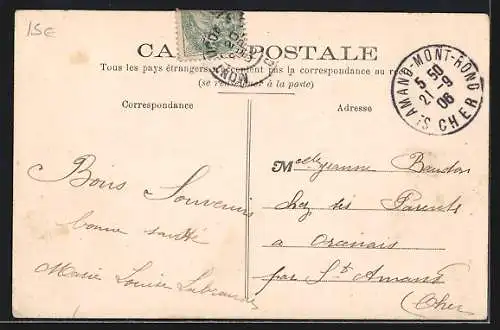 15E
CARTE POSTALE
Tous les pays étrangers n'acceptent pas la correspondance au recto
(se renseigner à la poste)
Correspondance
Adresse
ST AMAND-MONT-ROND
5 50
21 -9
06
CHER
Bons Souvenirs
bonne santé
Marie Louise
Melle Jeanne Baudon
chez ses Parents
a Orcenais
par St Amand
(Cher